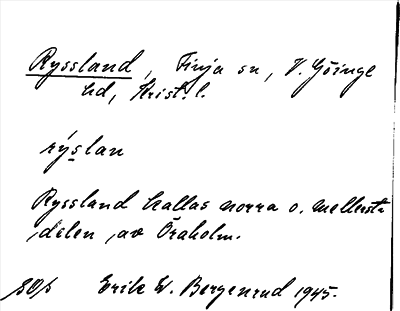 Ryssland, Finja sn, V. Göinge
hd, Krist. l.
rýslan
Ryssland kallas norra o. mellersta
delen av Öraholm.
Erik W. Bergenrud 1945.